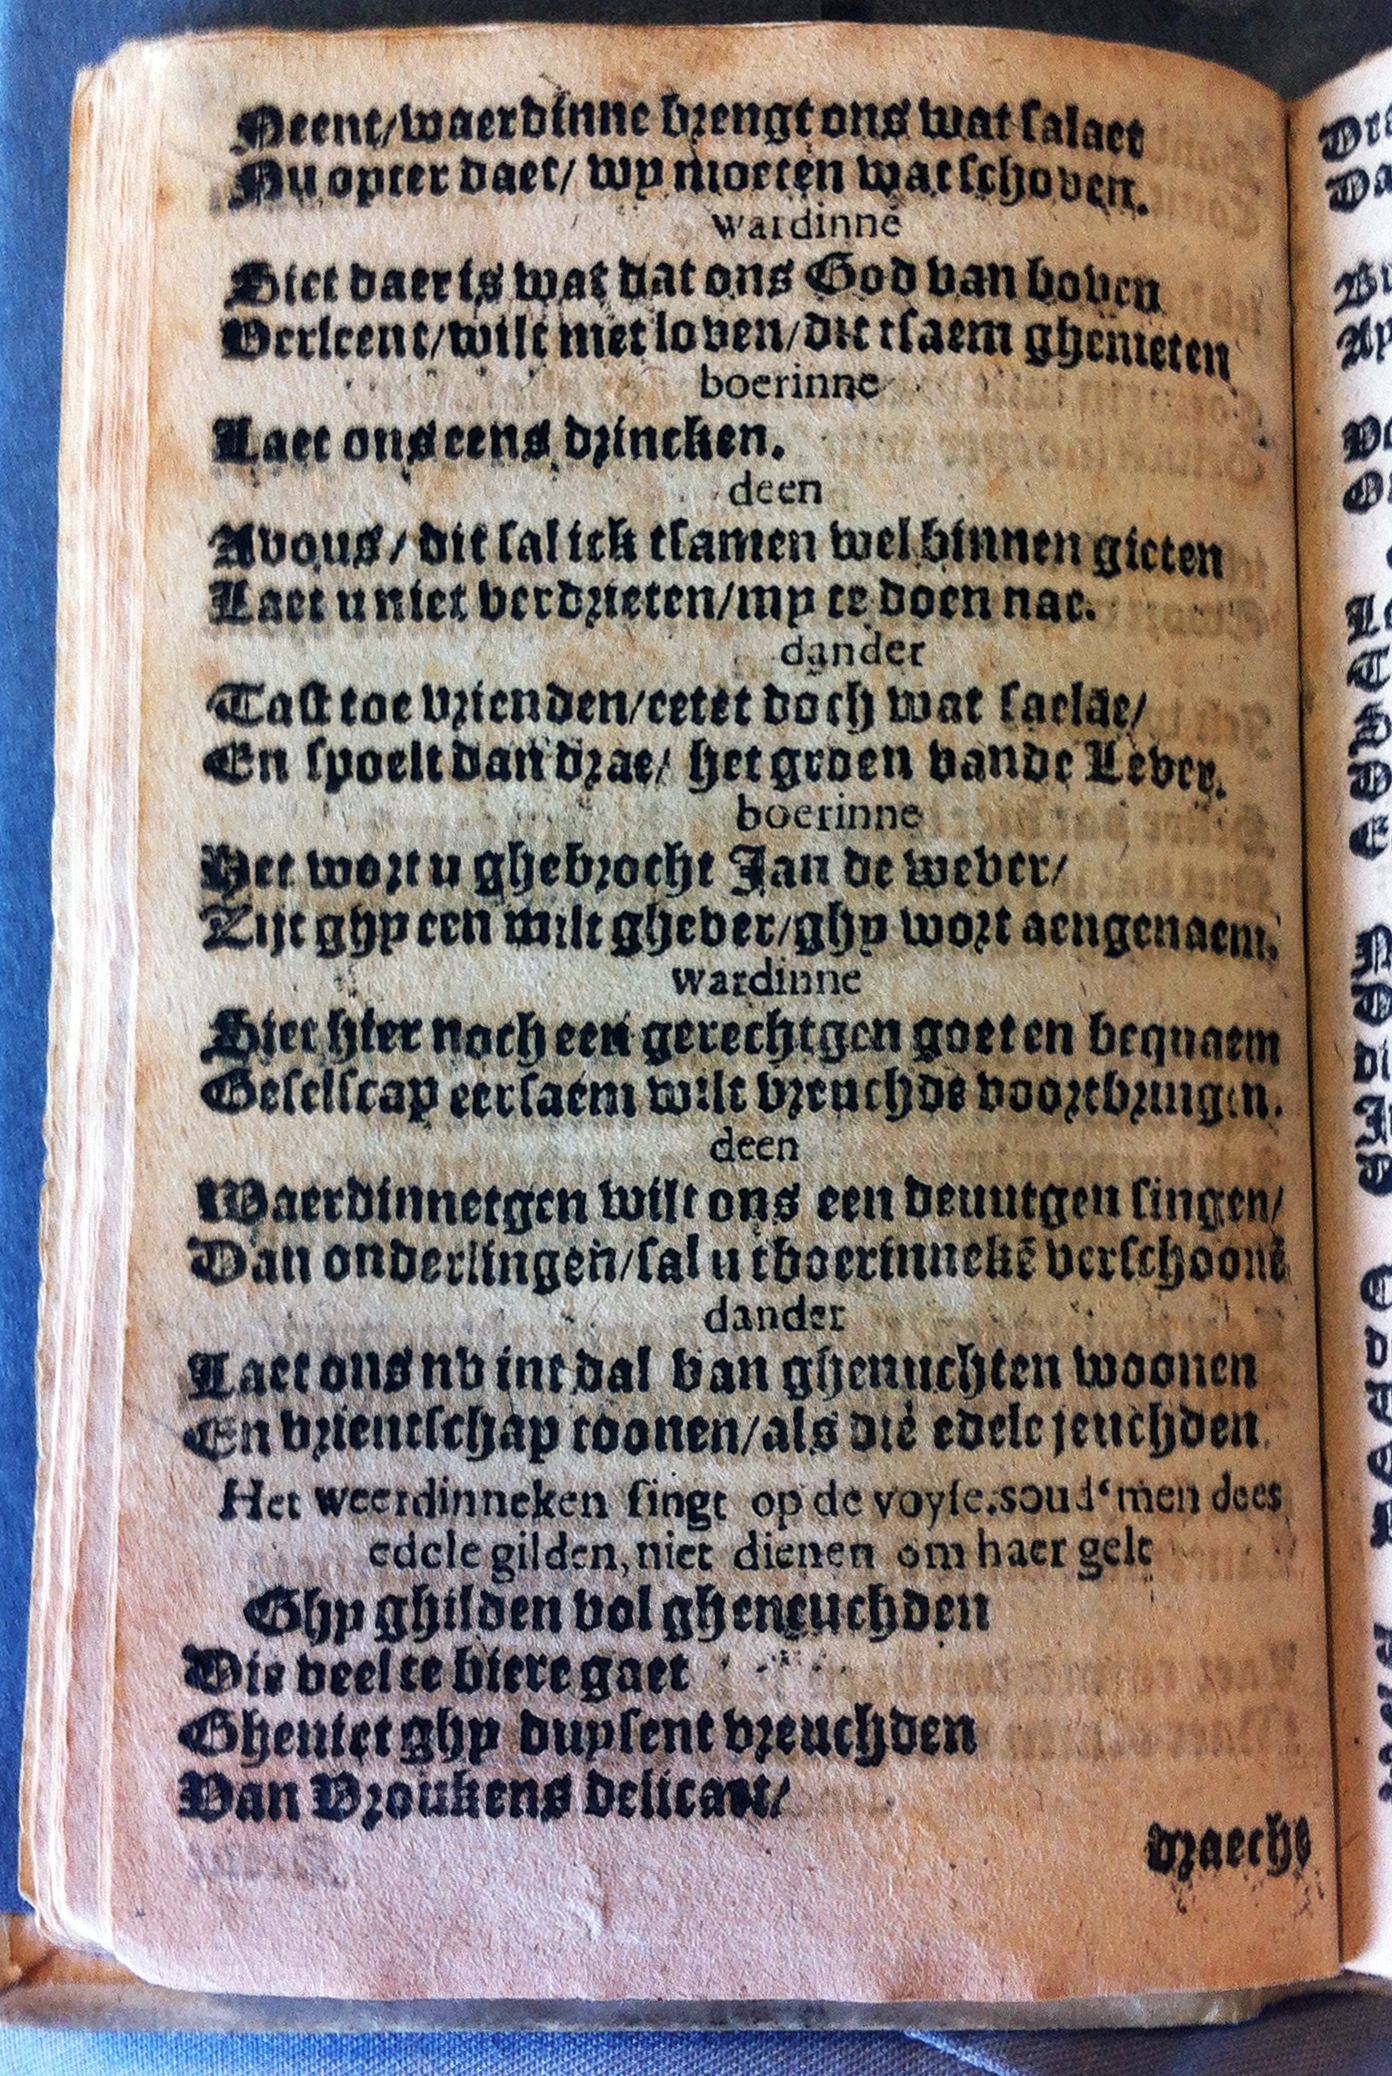 Neent/waerdinne brengt ons wat salaet
Nu opter daet/ wy moeten wat schoven.
wardinne
Siet daer is wat dat ons God van boven
Verleent/wilt met loven/dit tsaem ghenieten
boerinne
Laet ons eens drincken.
deen
Avous/ dit sal ick tsamen wel binnen gieten
Laet u niet verdrieten/my te doen nae.
dander
Tast toe vrienden/eetet doch wat saelae/
En spoelt dan drae/ het groen vande Lever.
boerinne
Het wort u ghebrocht Jan de wever/
Zijt ghy een milt ghever/ghy wort aengenaem.
wardinne
Siet hier noch een gerechtgen goet en bequaem
Geselscap eersaem wilt vreuchde voortbringen.
deen
Waerdinnetgen wilt ons een deuntgen singen/
Dan onderlingen/sal u tboerinnekē verschoonē
dander
Laet ons nv int dal van ghenuchten woonen
En vrientschap toonen/als die edele jeuchden
Het weerdinneken singt op de voyse. soud' men dees
edele gilden, niet dienen om haer gelt
Ghy ghilden vol gheneuchden
Die veel te biere gaet
Gheniet ghy duysent vreuchden
Van Vroukens delicaet/
draecht